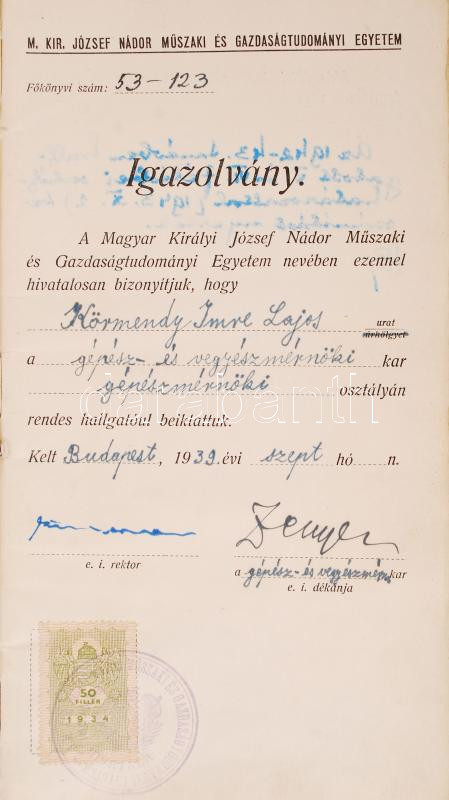 M. KIR. JÓZSEF NÁDOR MŰSZAKI ÉS GAZDASÁGTUDOMÁNYI EGYETEM
Főkönyvi szám: 53-123
Igazolvány.
A Magyar Királyi József Nádor Műszaki
és Gazdaságtudományi Egyetem nevében ezennel
hivatalosan bizonyítjuk, hogy
Körmendy Imre Lajos urat
úrhölgyet
a gépész- és vegyészmérnöki kar
gépészmérnöki osztályán
rendes hallgatóul beiktattuk.
Kelt Budapest, 1939. évi szept hó n.
e. i. rektor
a gépész- és vegyészmérn. kar
e. i. dékánja
50
FILLÉR
1934
darabanth